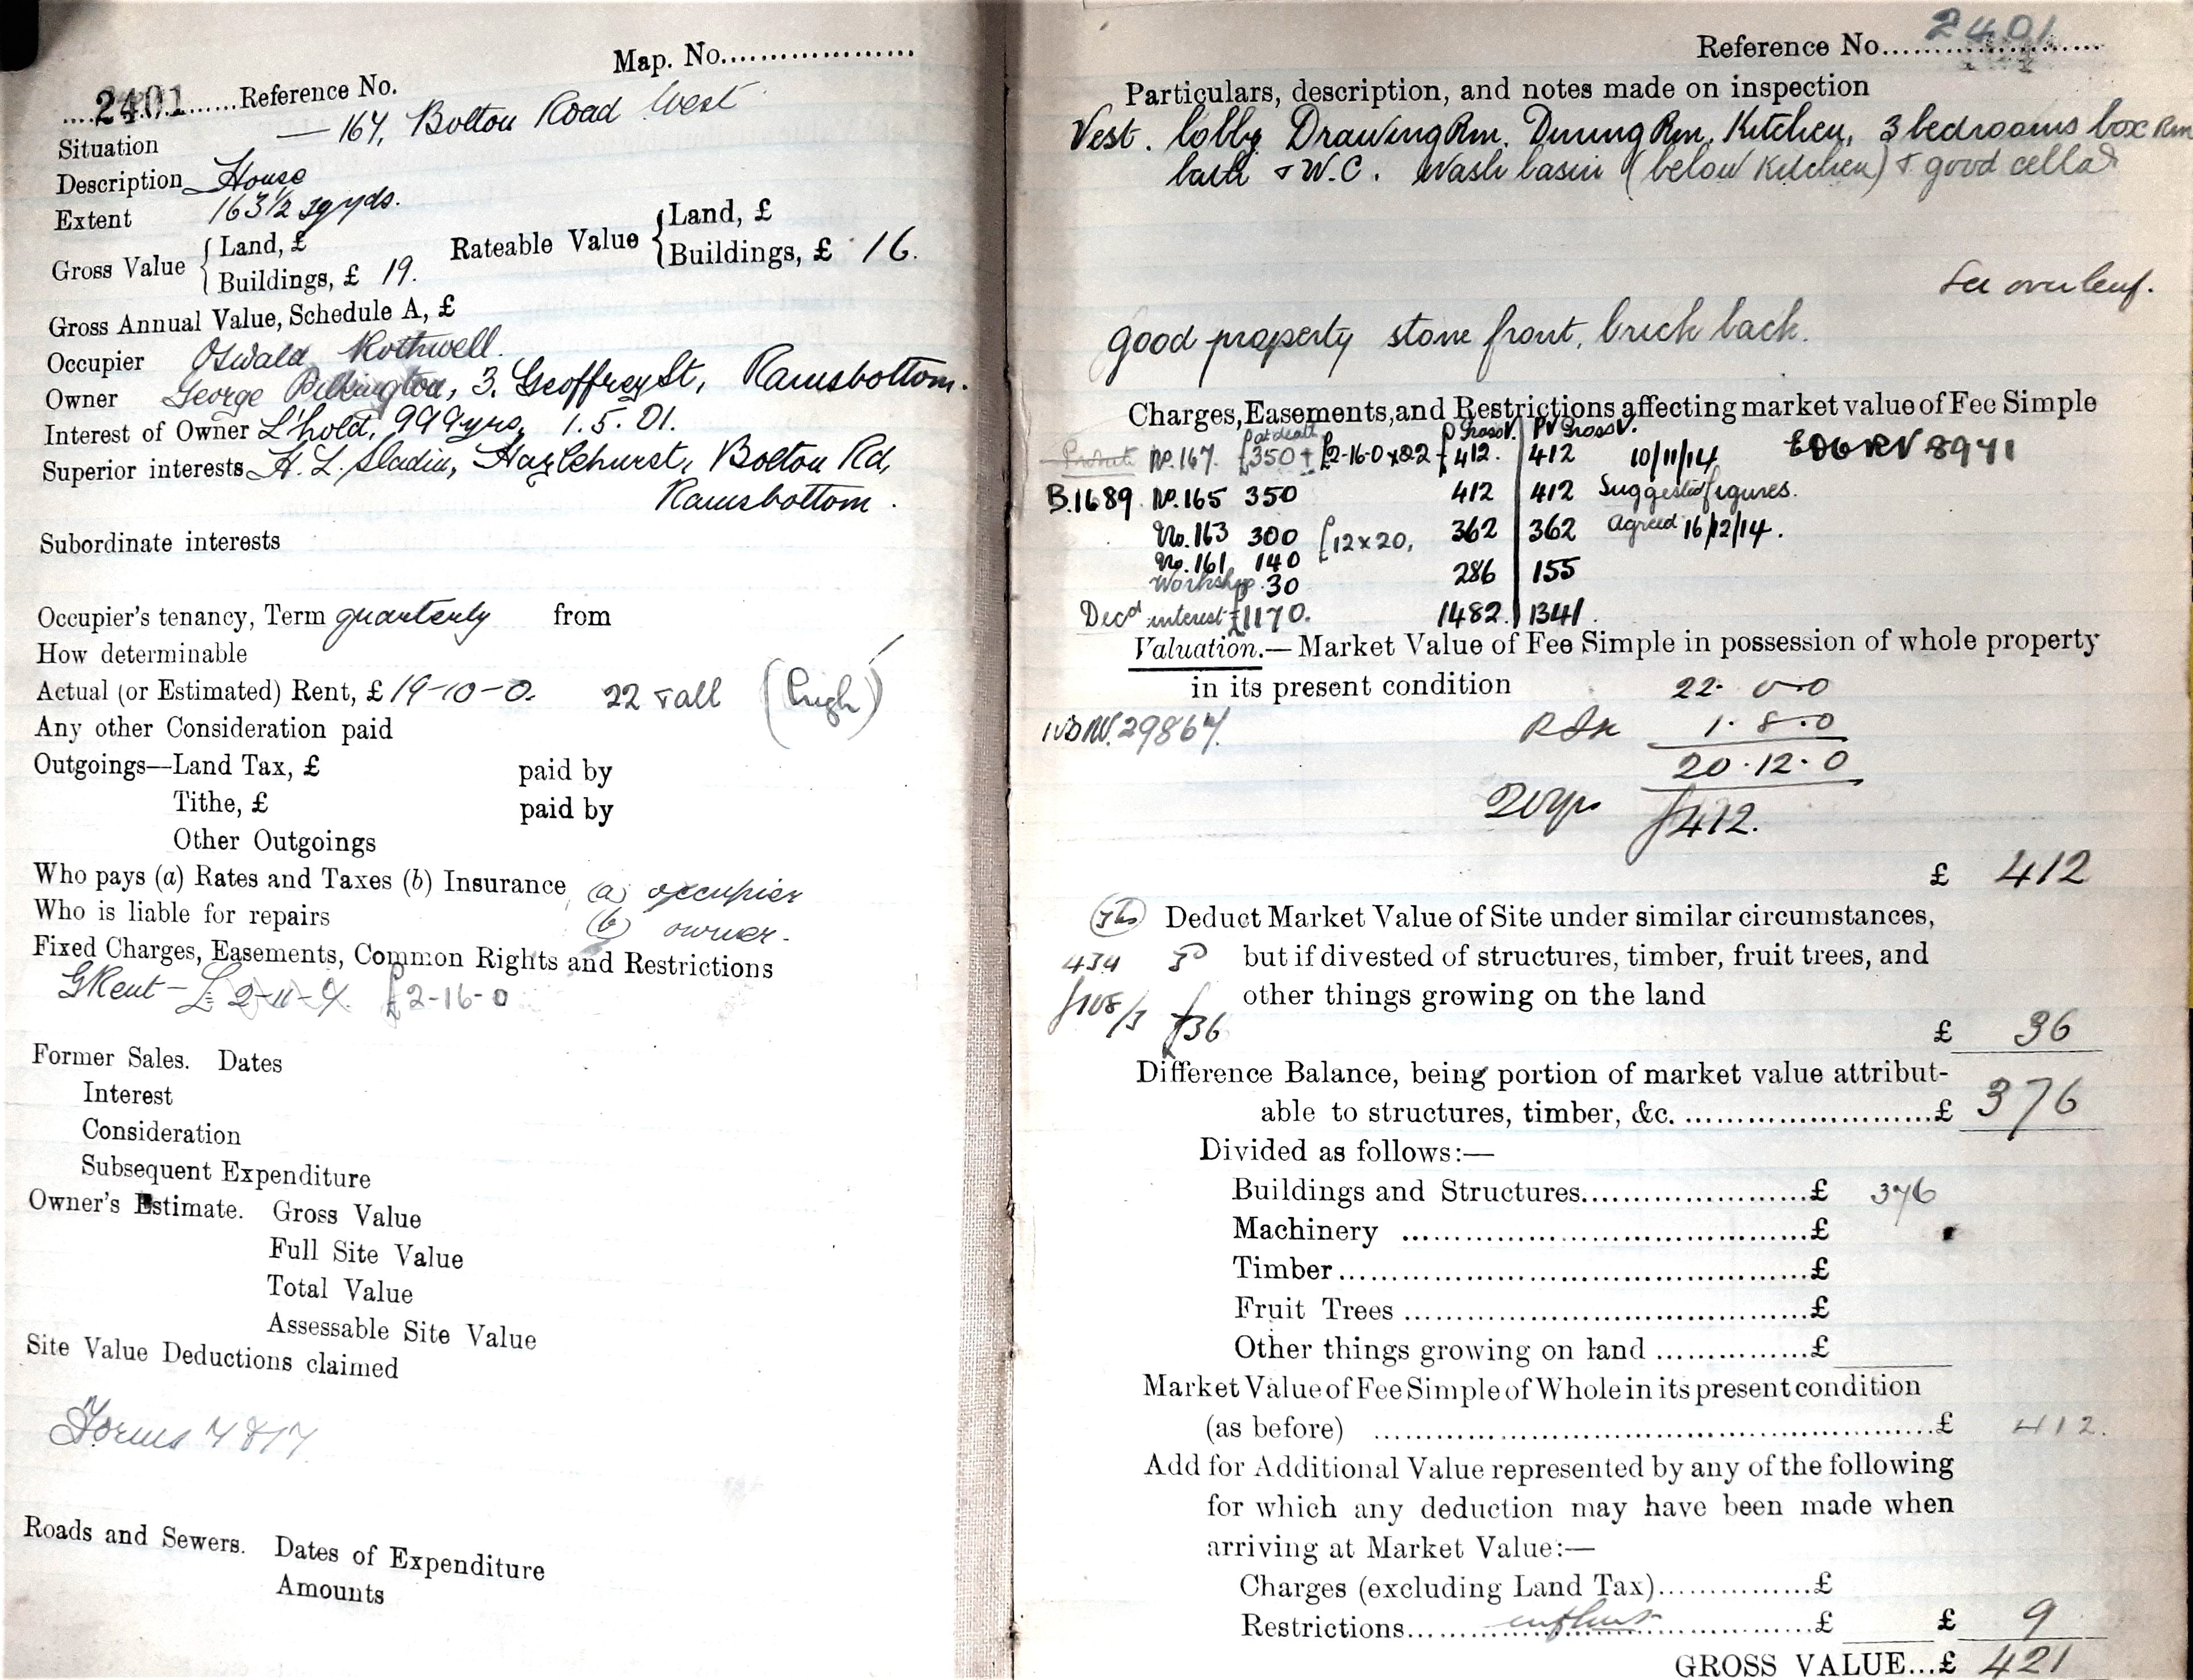 Map. No....................
2401 ......Reference No.
Situation — 167, Bolton Road West
Description House
Extent 163½ sq yds.
Gross Value { Land, £
Buildings, £ 19.
Rateable Value { Land, £
Buildings, £ 16.
Gross Annual Value, Schedule A, £
Occupier Oswald Rothwell.
Owner George Pilkington, 3. Geoffrey St, Ramsbottom.
Interest of Owner L'hold, 999 yrs, 1.5.01.
Superior interests H. L. Sladin, Hazlehurst, Bolton Rd,
Ramsbottom.
Subordinate interests
Occupier's tenancy, Term quarterly from
How determinable
Actual (or Estimated) Rent, £ 19-10-0. 22 all (high)
Any other Consideration paid
Outgoings—Land Tax, £ paid by
Tithe, £ paid by
Other Outgoings
Who pays (a) Rates and Taxes (b) Insurance (a) occupier
Who is liable for repairs (b) owner.
Fixed Charges, Easements, Common Rights and Restrictions
GRent - £ 2-11-4. £2-16-0
Former Sales. Dates
Interest
Consideration
Subsequent Expenditure
Owner's Estimate. Gross Value
Full Site Value
Total Value
Assessable Site Value
Site Value Deductions claimed
Forms
Roads and Sewers. Dates of Expenditure
Amounts
Reference No. 2401
Particulars, description, and notes made on inspection
Vest. lobby Drawing Rm, Dining Rm, Kitchen, 3 bedrooms box Rm
bath & W.C. Wash basin (below Kitchen) & good cellar
See overleaf.
good property stone front, brick back.
Charges, Easements, and Restrictions affecting market value of Fee Simple
at death Gross V. PV Gross V.
No. 167. £350 + £2-16-0 x 22 £412. 412 10/11/14 8941
B.1689 No. 165 350 412 412 Suggested figures.
No. 163 300 £12x20, 362 362 agreed 16/12/14.
No. 161 140
Workshop 30 286 155
Decd interest £1170. 1482. 1341.
Valuation.—Market Value of Fee Simple in possession of whole property
in its present condition 22. 0-0
29867. 1. 8. 0
20. 12. 0
20yp £412.
£ 412
Deduct Market Value of Site under similar circumstances,
434 but if divested of structures, timber, fruit trees, and
£108/3 £36 other things growing on the land
£ 36
Difference Balance, being portion of market value attribut-
able to structures, timber, &c. ..............................£ 376
Divided as follows:—
Buildings and Structures........................£ 376
Machinery ..........................................£
Timber................................................£
Fruit Trees .........................................£
Other things growing on land ...............£
Market Value of Fee Simple of Whole in its present condition
(as before) ..........................................................£ 412.
Add for Additional Value represented by any of the following
for which any deduction may have been made when
arriving at Market Value:—
Charges (excluding Land Tax)...............£
Restrictions.........................................£ £ 9
GROSS VALUE...£ 421